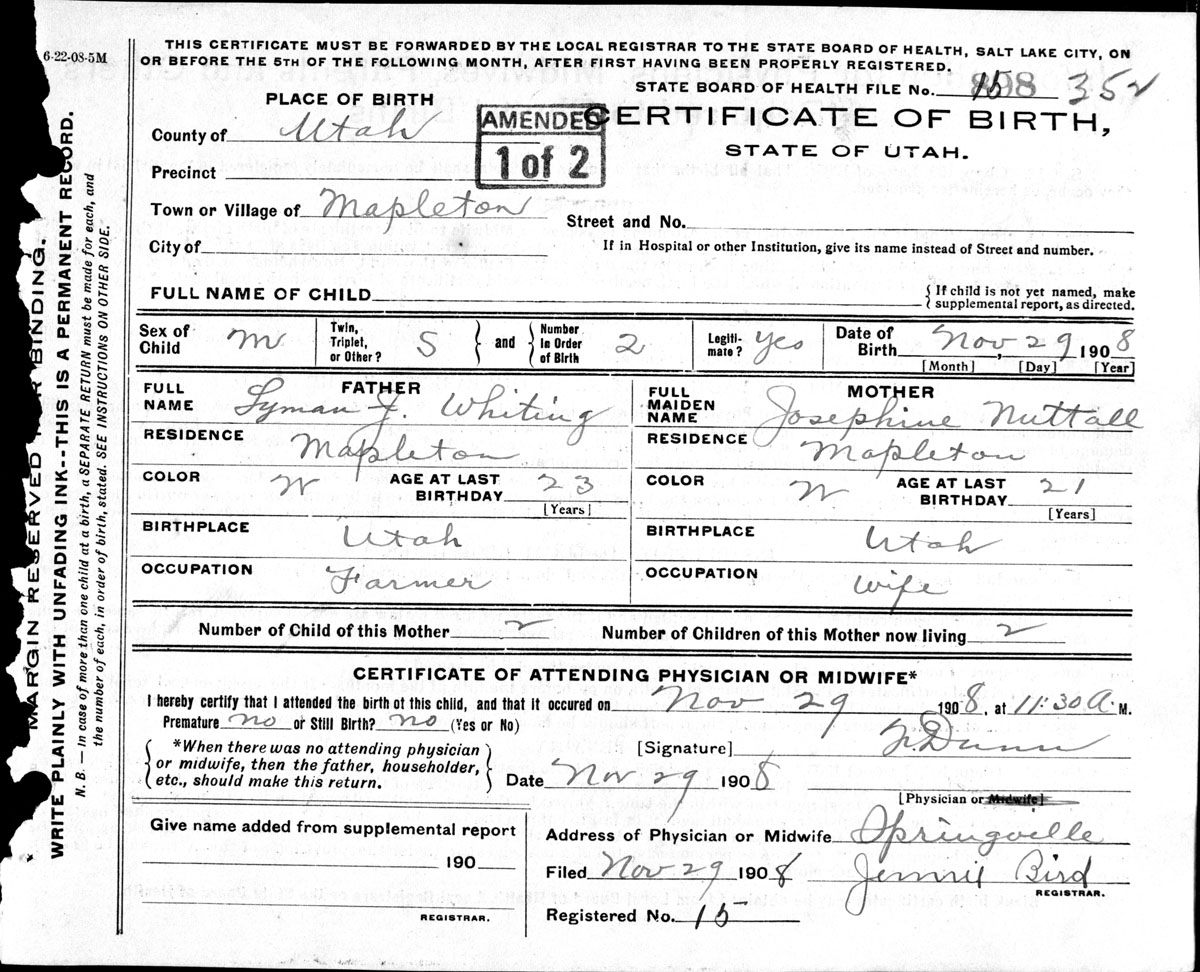 6-22-08-5M
THIS CERTIFICATE MUST BE FORWARDED BY THE LOCAL REGISTRAR TO THE STATE BOARD OF HEALTH, SALT LAKE CITY, ON
OR BEFORE THE 5TH OF THE FOLLOWING MONTH, AFTER FIRST HAVING BEEN PROPERLY REGISTERED.
STATE BOARD OF HEALTH FILE No. 352
PLACE OF BIRTH
AMENDED
1 of 2
CERTIFICATE OF BIRTH,
STATE OF UTAH.
County of Utah
Precinct
Town or Village of Mapleton
Street and No.
City of
If in Hospital or other Institution, give its name instead of Street and number.
FULL NAME OF CHILD
{If child is not yet named, make
supplemental report, as directed.
Sex of Child M
Twin, Triplet, or Other? S
and
Number in Order of Birth 2
Legiti-mate? Yes
Date of Birth Nov, 29 1908
[Month] [Day] [Year]
FATHER
FULL NAME Lyman J. Whiting
RESIDENCE Mapleton
COLOR W AGE AT LAST BIRTHDAY 23
[Years]
BIRTHPLACE Utah
OCCUPATION Farmer
MOTHER
FULL MAIDEN NAME Josephine Nuttall
RESIDENCE Mapleton
COLOR W AGE AT LAST BIRTHDAY 21
[Years]
BIRTHPLACE Utah
OCCUPATION Wife
Number of Child of this Mother 2 Number of Children of this Mother now living 2
CERTIFICATE OF ATTENDING PHYSICIAN OR MIDWIFE*
I hereby certify that I attended the birth of this child, and that it occured on Nov 29 1908, at 11:30 A. M.
Premature no or Still Birth? no (Yes or No)
{*When there was no attending physician
or midwife, then the father, householder,
etc., should make this return.}
[Signature] Dunn
Date Nov 29 1908
[Physician or Midwife]
Give name added from supplemental report
190
REGISTRAR.
Address of Physician or Midwife Springville
Filed Nov 29 1908 Jennie Bird
REGISTRAR.
Registered No. 15
MARGIN RESERVED FOR BINDING.
WRITE PLAINLY WITH UNFADING INK--THIS IS A PERMANENT RECORD.
N. B. — In case of more than one child at a birth, a SEPARATE RETURN must be made for each, and
the number of each, in order of birth, stated. SEE INSTRUCTIONS ON OTHER SIDE.